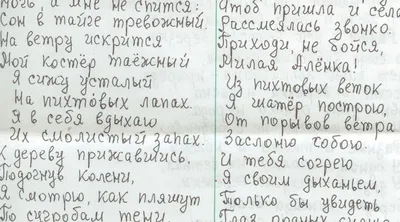 Ночь, а мне не спится:
Сон в тайге тревожный.
На ветру искрится
Мой костёр таёжный
Я сижу усталый
На пихтовых лапах.
Я в себя вдыхаю
Их смолистый запах.
К дереву прижавшись,
Подогнув колени,
Я смотрю, как пляшут
По сугробам тени.
Чтоб пришла и села
Рассмеялась звонко.
Приходи, не бойся,
Милая Алёнка!
Из пихтовых веток
Я шатёр построю,
От порывов ветра
Заслоню собою.
И тебя согрею
Я своим дыханьем,
Только бы увидеть
Глаз родных